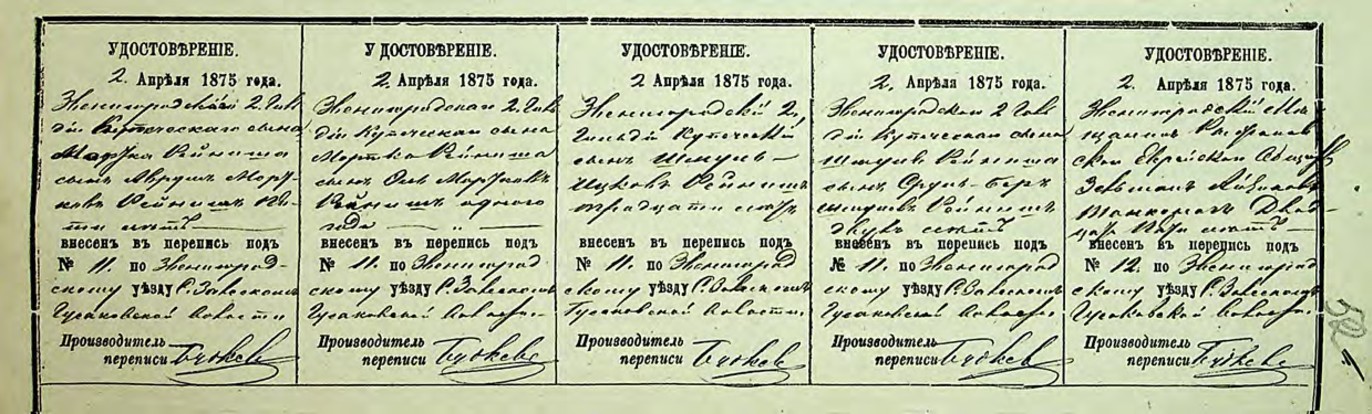 УДОСТОВѢРЕНІЕ.
2. Апрѣля 1875 года.
Звенигородскаго 2. Гиль
діи Купеческаго сына
сынъ Аврумъ Морт-
ковъ Рейнишъ Пя-
ти лѣтъ
внесенъ въ перепись подъ
№ 11. по Звенигород-
скому уѣзду С.
Гусаковской Волости
Производитель
переписи
УДОСТОВѢРЕНІЕ.
2. Апрѣля 1875 года.
Звенигородскаго 2. Гиль
діи Купеческаго сына
Мортко Рейниша
сынъ Мортковъ
Рейнишъ одного
года
внесенъ въ перепись подъ
№ 11. по Звенигород
скому уѣзду С.
Гусаковской Волости.
Производитель
переписи
УДОСТОВѢРЕНІЕ.
2 Апрѣля 1875 года.
Звенигородскій 2,
Гильдіи Купеческій
сынъ Шмуль-
Ицковъ Рейнишъ
тридцати лѣтъ
внесенъ въ перепись подъ
№ 11. по Звенигород
скому уѣзду С.
Гусаковской Волости.
Производитель
переписи
УДОСТОВѢРЕНІЕ.
2. Апрѣля 1875 года.
Звенигородскаго 2 Гиль
діи Купеческаго сына
Шмуля Рейниша
сынъ Сруль-Беръ
Шмулевъ Рейнишъ
двухъ лѣтъ
внесенъ въ перепись подъ
№ 11. по Звенигород
скому уѣзду С.
Гусаковской Волости.
Производитель
переписи
УДОСТОВѢРЕНІЕ.
2 Апрѣля 1875 года.
Звенигородскій Мѣ
щанинъ
ской Еврейской Общества
Зельманъ Айзиковъ
Двад-
цати лѣтъ
внесенъ въ перепись подъ
№ 12. по Звенигород
скому уѣзду С.
Гусаковской Волости.
Производитель
переписи